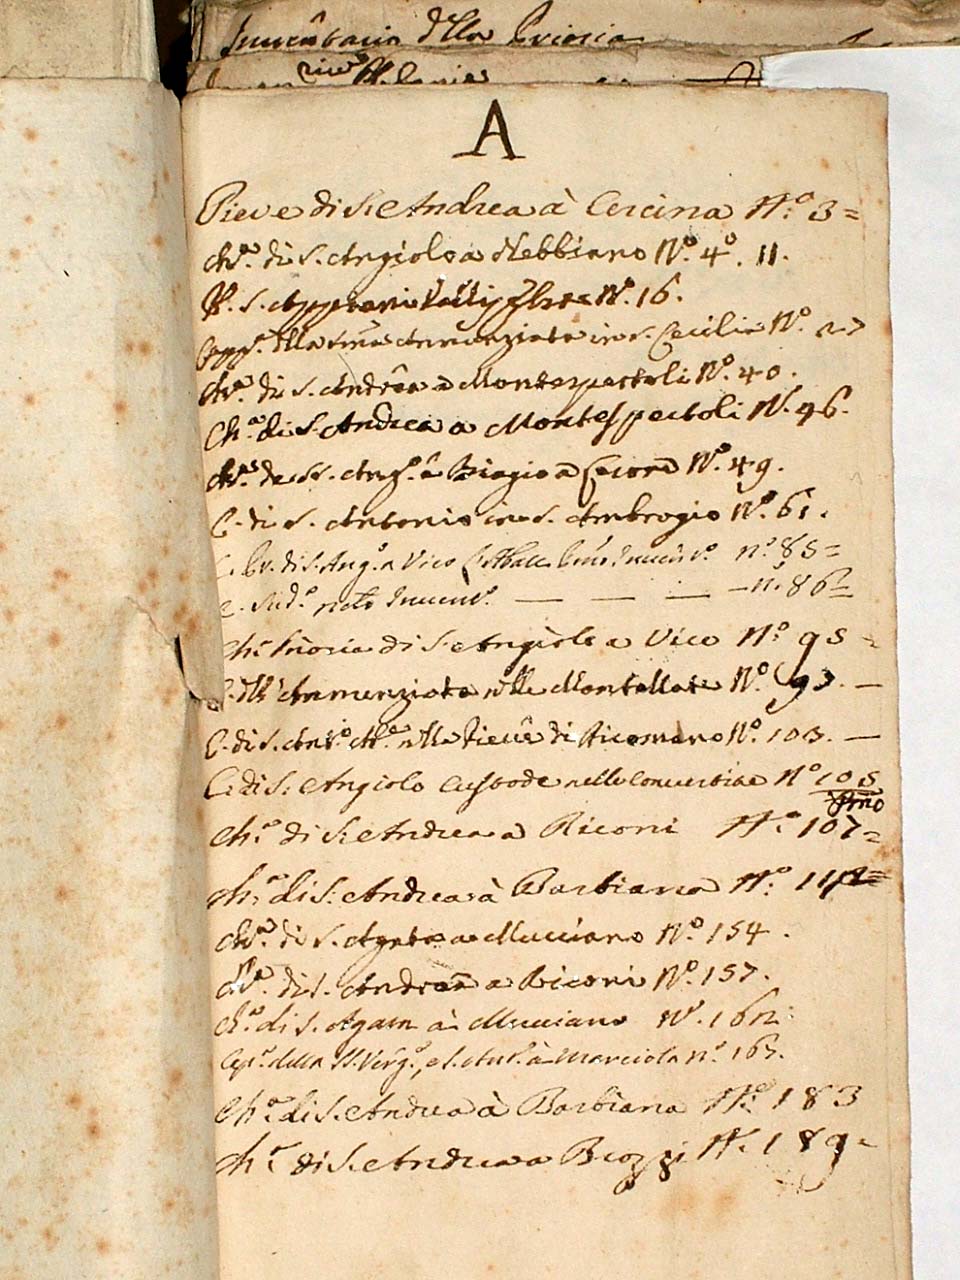 Inventario della Prioria
A
Pieve di S. Andrea à Cercina N.º 3=
Ch.ª di S. Angiolo a Nebbiano N.º 4º. 11.
P. S. Appiani N.º 16.
della SSma Annunziata in S. Cecilia N.º 27
Ch.ª di S. Andrea a Montespertoli N.º 40.
Ch.ª di S. Andrea a Montespertoli N. 46.
Ch.ª de SS. Ang.º e Biagio a N.º 49.
C. di S. Antonio in S. Ambrogio N.º 61.
di S. Ang.º a Vico n.º 85=
C. Sud.º Invent.º — — — — N.º 86=
Ch.ª Prioria di S. Angiolo a Vico N.º 95=
C. dll' Annunziata nlle Montellate N.º 97. —
C. di S. Ant.º Ab.e nlla Pieve di Ricomano N.º 103. —
C. di S. Angiolo Custode nelle Convertite N.º 105
Pmo
Ch.ª di S. Andrea a Riconi N.º 107=
Ch.ª di S. Andrea à Barbiana N.º
Ch.ª di S. Agata a Mucciano N.º 154.
Ch.ª di S. Andrea a Riconi N.º 157.
Ch.ª di S. Agata à Mucciano N.º 162
Cap.ª della SS. Verg.e, e S. Ant.º à Marciola n.º 167.
Ch.ª di S. Andrea à Barbiana N.º 183
Ch.ª di S. Andrea a Brozzi N.º 189=